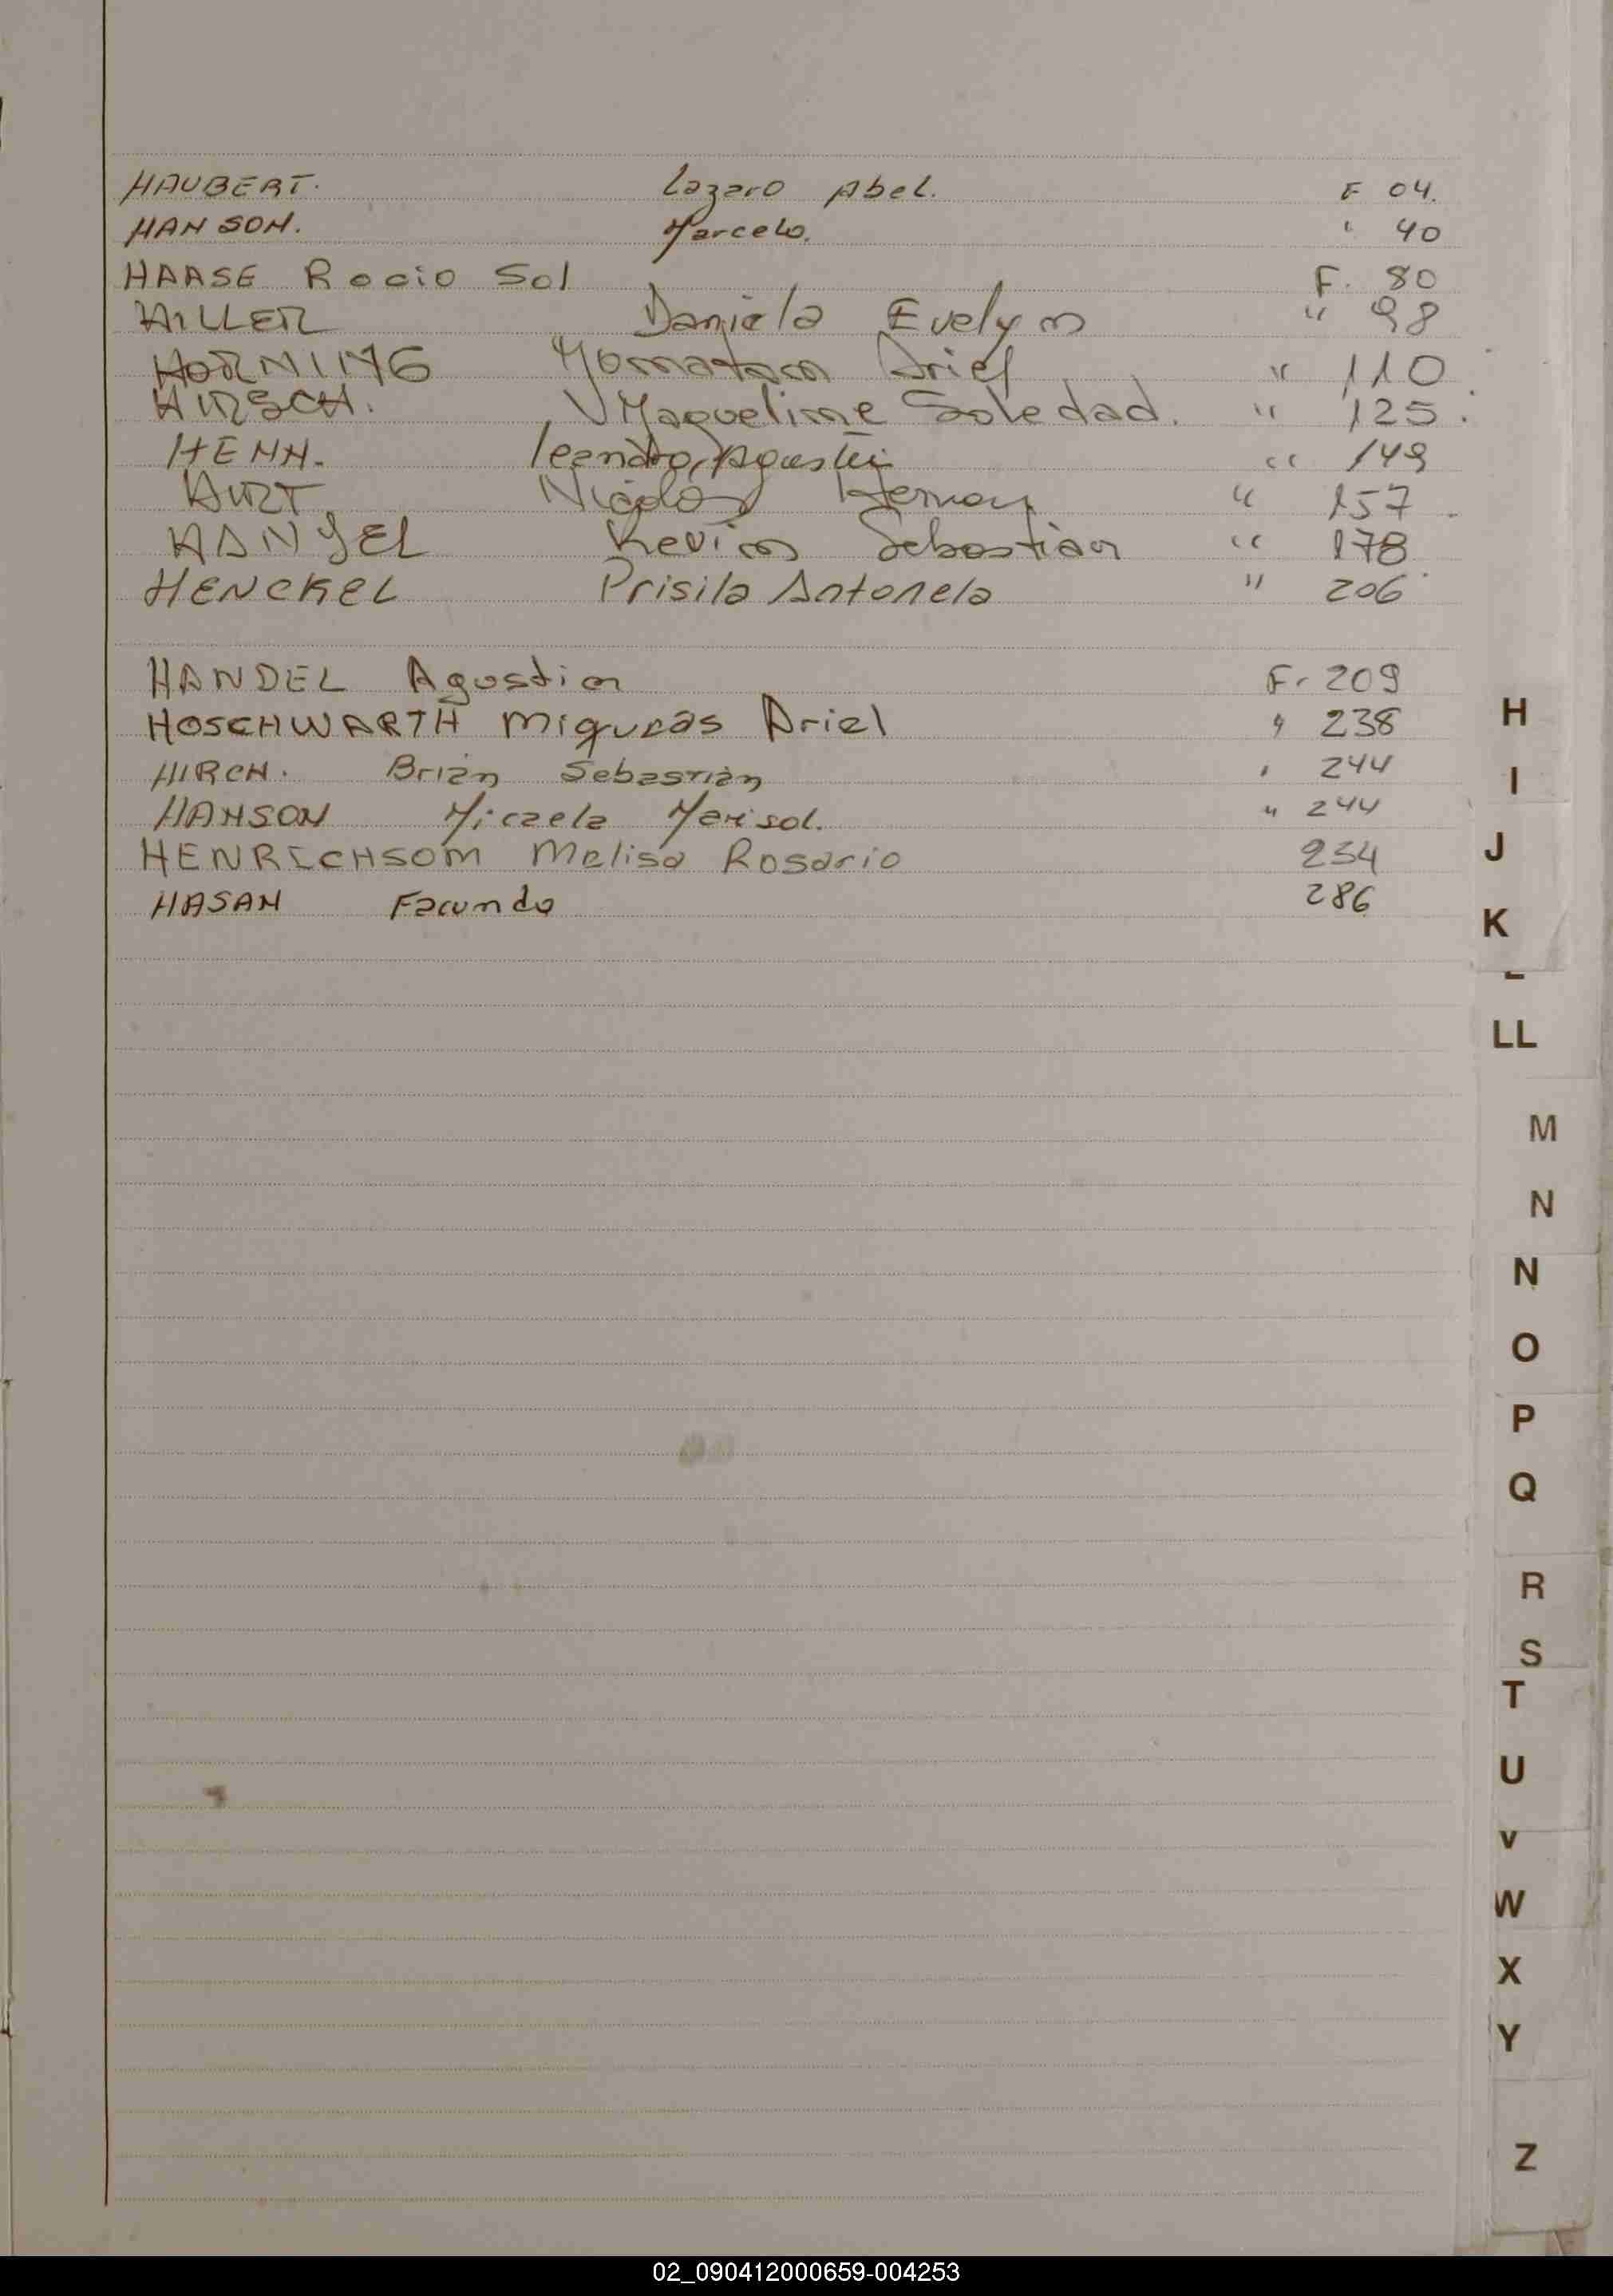 HAUBERT. Lazaro Abel. F 04.
HANSON. Marcelo. " 40
HAASE Rocio Sol F. 80
HILLER Daniela Evelyn " 98
HORNING Yonnatan Ariel " 110
HIRSCH. Yaqueline Soledad. " 125.
HENN. leandro, Agustin " 149
HIRT Nicolas Hernan " 157
HANSEL Kevin Sebastian " 178
HENCKEL Prisila Antonela " 206
HANDEL Agustin F. 209
HOSCHWARTH Ariel " 238
HIRCH. Brian Sebastián " 244
HANSON Micaela Marisol. " 244
HENRICHSOM Melisa Rosario 254
HASAN Facundo 286
H
I
J
K
L
LL
M
N
N
O
P
Q
R
S
T
U
V
W
X
Y
Z
02_090412000659-004253